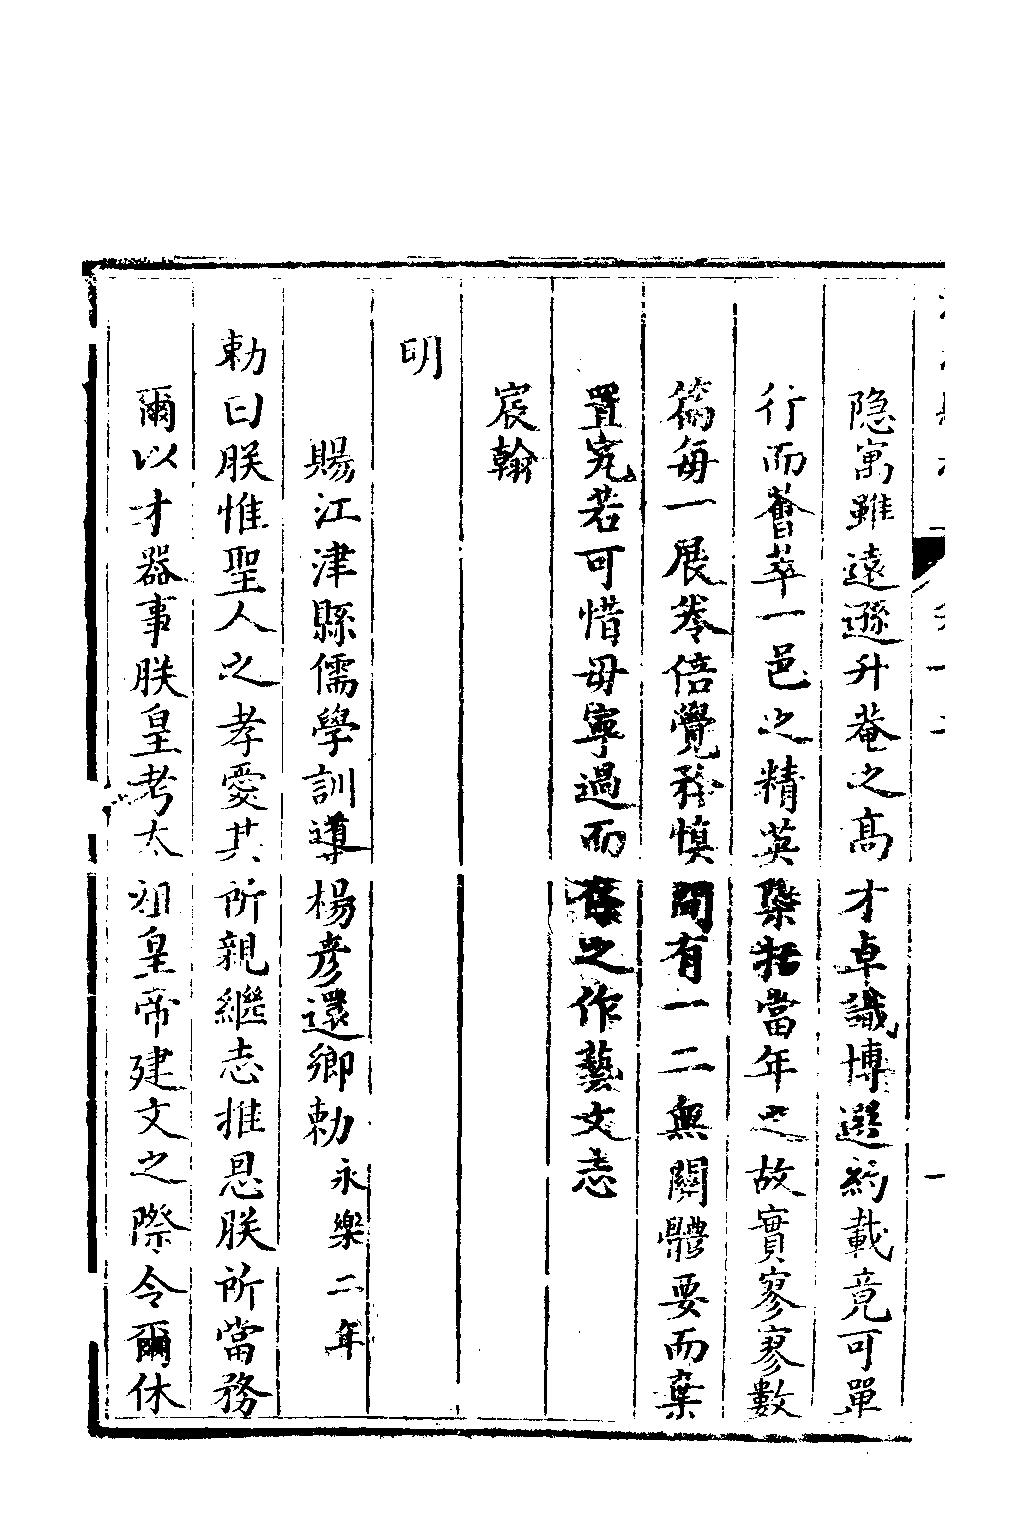 隐寓雖遠遜升菴之高才卓識博選約載竟可單
行而薈萃一邑之精英檃括當年之故實寥寥數
篇每一展卷倍覺矜慎間有一二無關體要而棄
置究若可惜毋寧過而存之作藝文志
宸翰
明
賜江津縣儒學訓導楊彥還鄉勅永樂二年
勅曰朕惟聖人之孝愛其所親繼志推恩朕所當務
爾以才器事朕皇考太祖皇帝建文之際令爾休